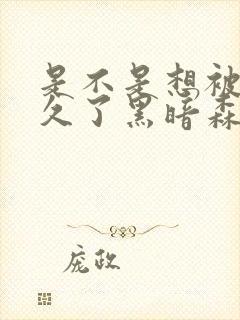 是不是想被
久了黑暗森
庞政